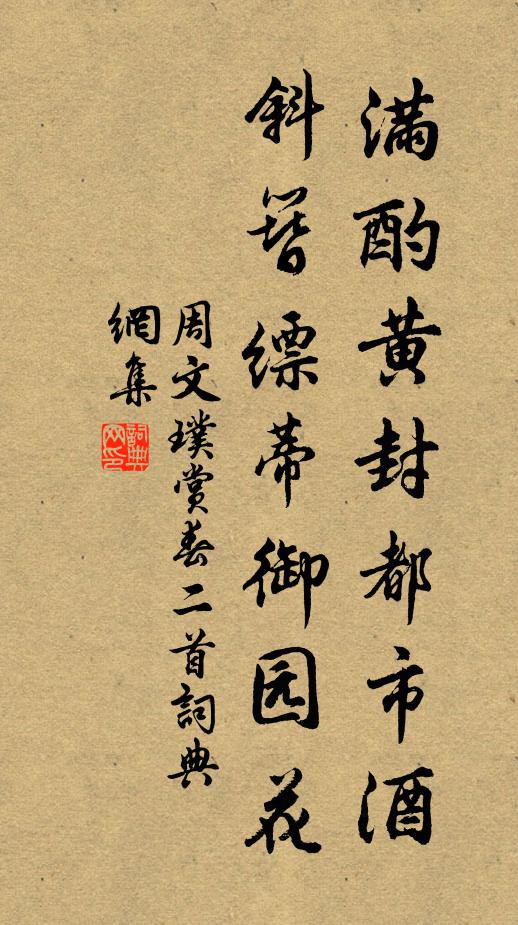 满酌黄封都市酒
斜簪缥蒂御园花
周文璞赏春二首詞典
網集
詞典网印